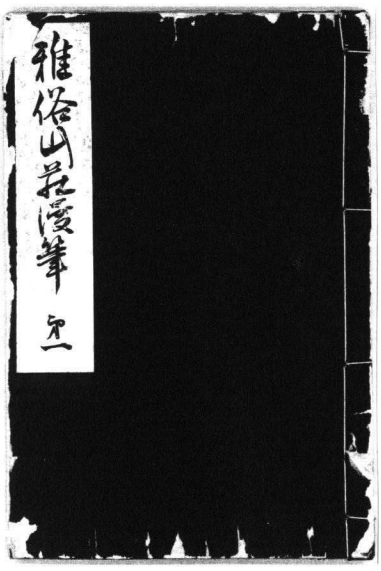 雅俗山荘漫筆 第一